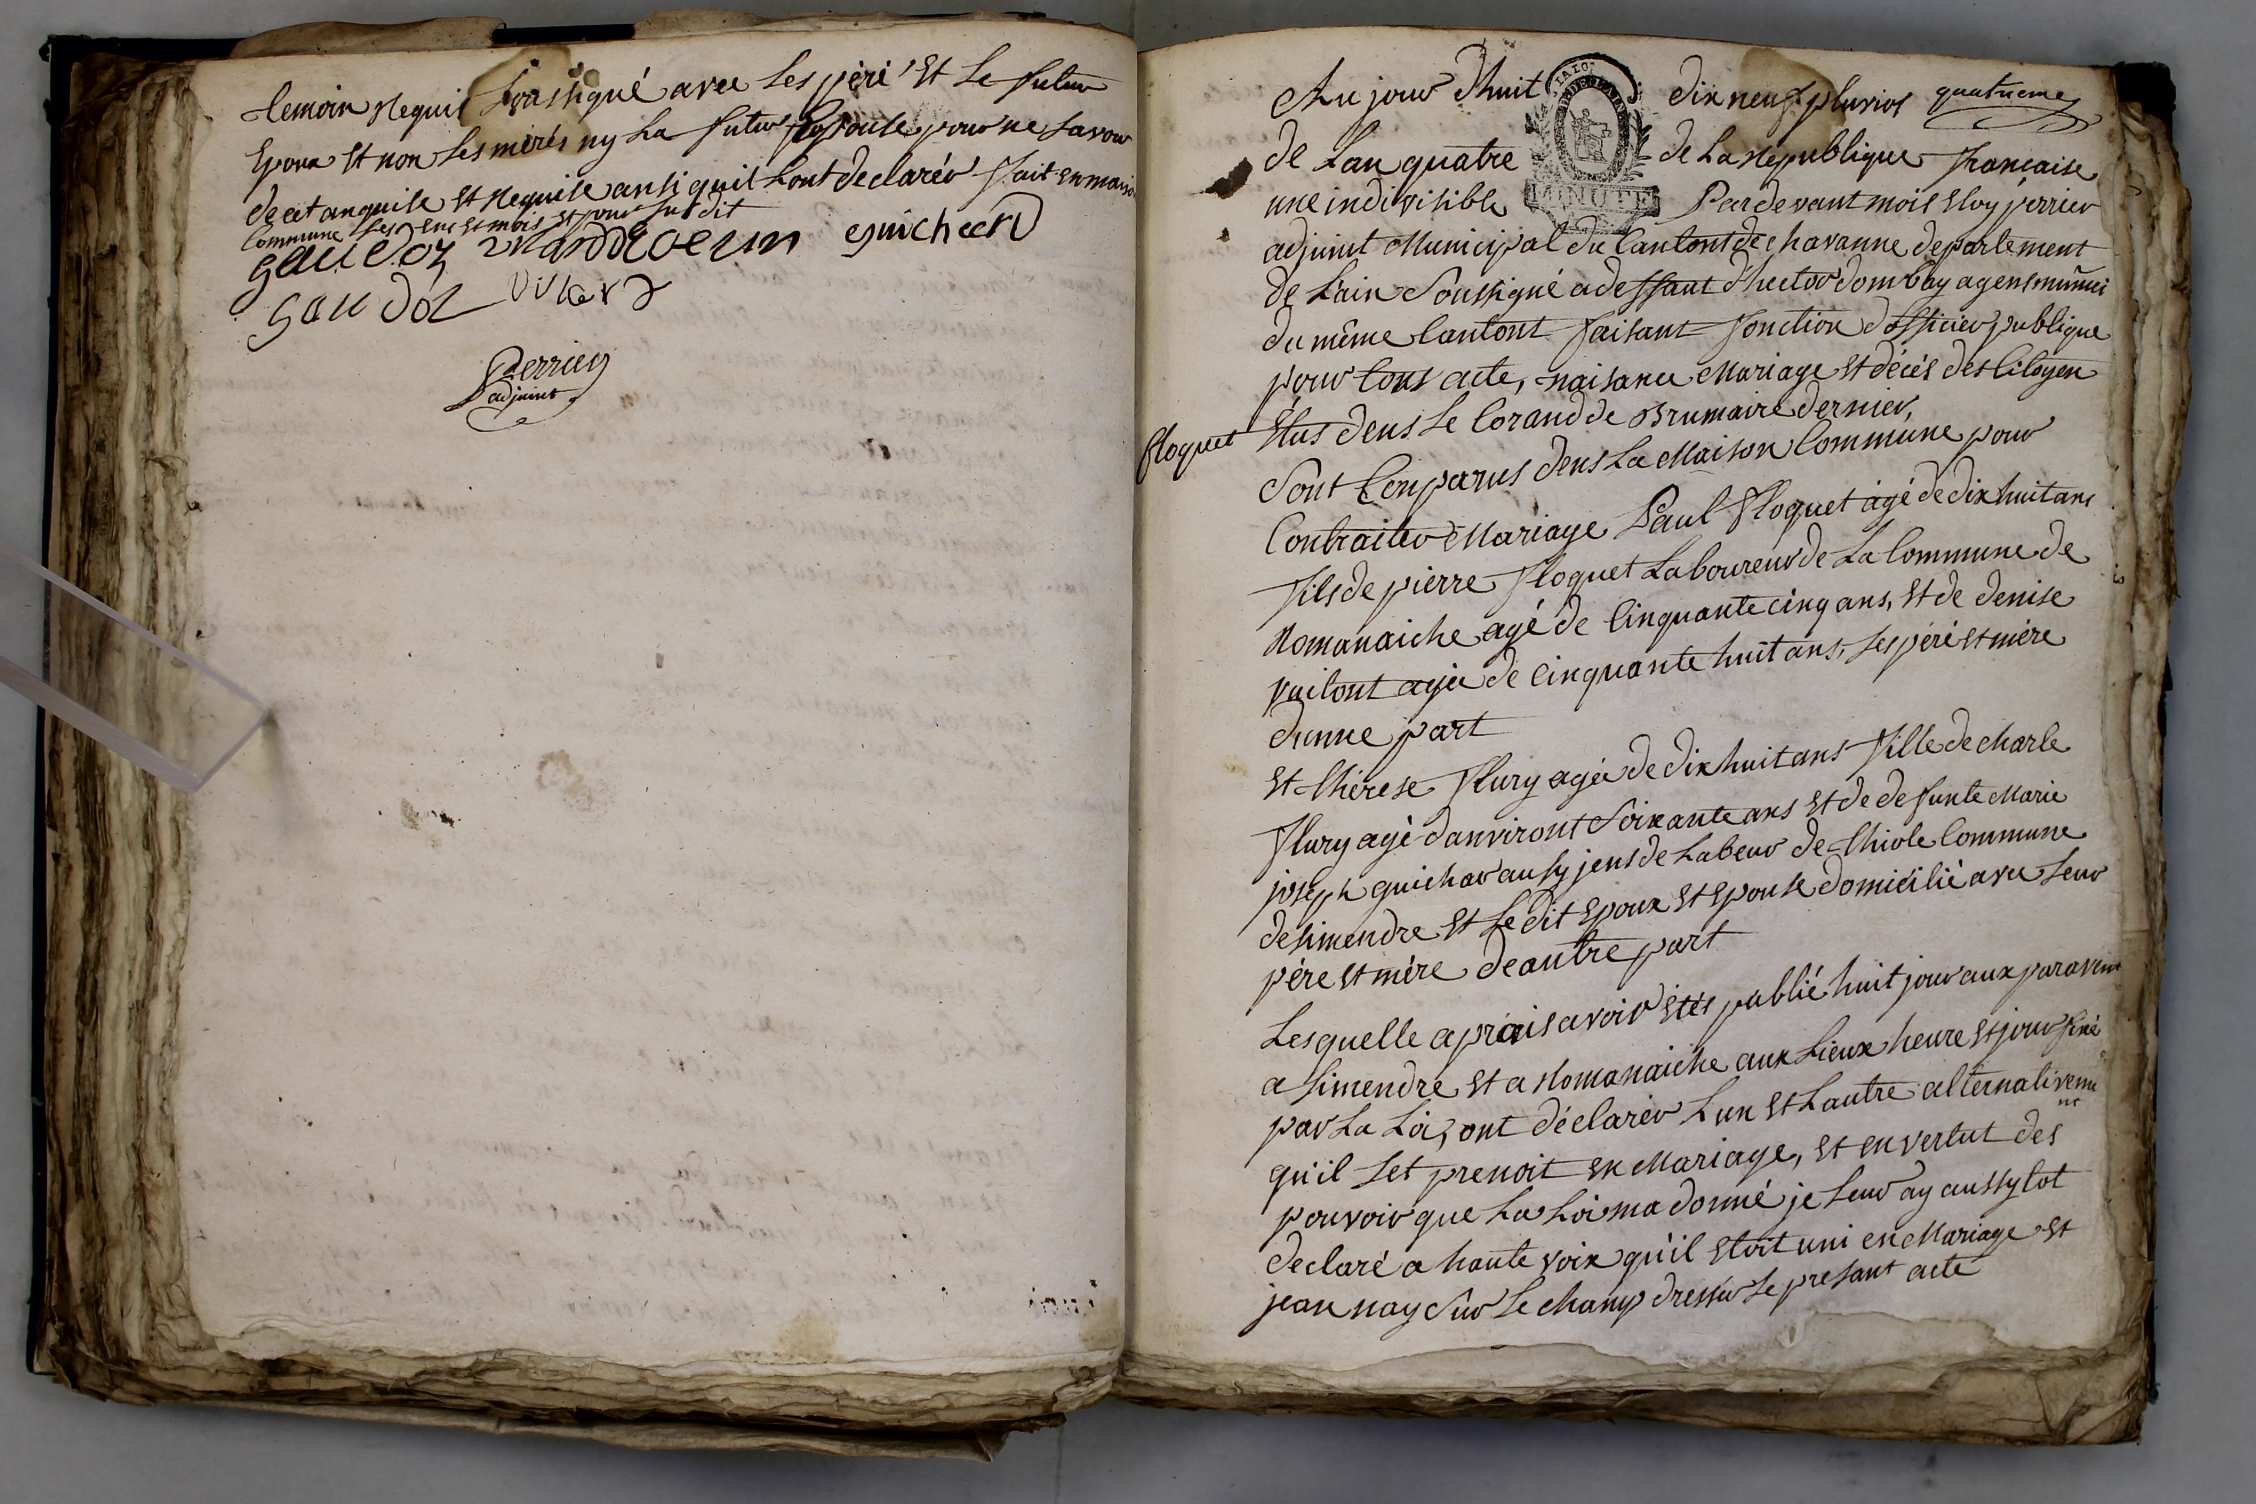 temoin Requis soussigné avec les péré et le futur
Epoux et non les merés ny la futur Epouse pour ne savoir
de cet anquise et Requise ansi quil l'ont declarér fait en maison
commune les an et mois et jour susdit
gaudoz guicheert
gaudoz villerd
Perrier
adjoint
Au jour d'huit dix neuf pluvios quatrieme
de L'an quatre de La Republique francaise
une indivisible Pardevant mois Eloy perrier
LA LOI
MINUTE
adjoint Municipal du Cantont de chavanne departement
de L'ain Soussigné a deffaut d'hector dombey agens munici
du même Cantont faisant fonction d'officier publique
pour tous acte, naisance Mariage et décés des Citoyen
floquet
Elus dens le Corand de Brumaire dernier,
Sont Comparus dens La Maison Commune pour
Contraiter Mariage Paul floquet âgé de dix huit ans
fils de pierre floquet Laboureur de La Commune de
Romanaiche agé de Cinquante cinq ans, et de denise
vuilont agéé de Cinquante huit ans, ses péré et mére
dunne part
et thérese flury agéé de dix huit ans fille de charle
flury agé d'anviront Soixante ans et de defunte Marie
joseph guichar aussy jens de Labeur de thiole Commune
de simendre et le dit Epoux et Epouse domicilié avec leur
pére et mére deautre part
Lesquelle aprais avoir Etés publié huit jour aux paravent
a simendre et a Romanaiche aux Lieux heure et jour fixé
par La Loi, ont déclarér L'un et L'autre alternativeme
nt
qu'il set prenoit en Mariage, et en vertut des
pouvoir que La Loi ma donné je leur ay aussytot
declaré a haute voix qu'il Etoit uni en Mariage et
jean nay sur le champ dressér le presant acte